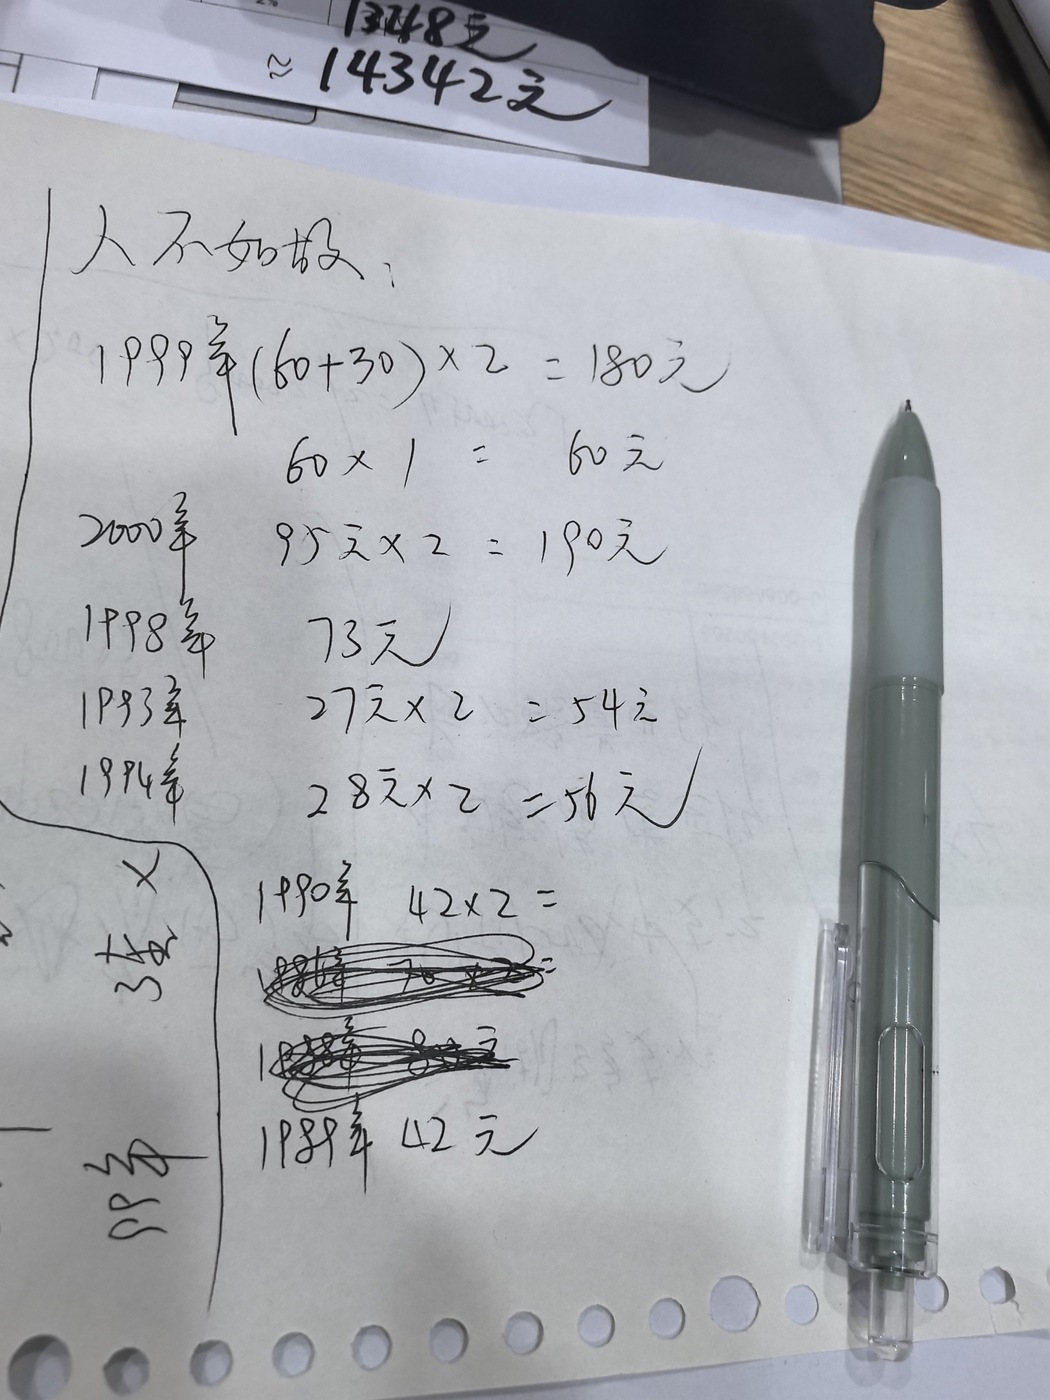 1348元
≈14342元
人不如故、
1999年(60+30)×2=180元
60×1=60元
2000年 95元×2=190元
1998年 73元
1993年 27元×2=54元
1994年 28元×2=56元
1990年 42×2=
1989年 42元
99年